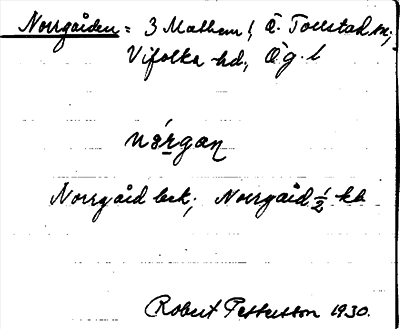 Norrgården = 3 Mathem, Ö. Tollstad sn;
Vifolka hd, Ög. l
nórgan
Norrgård bek; Norrgård ½ kb
Robert Pettersson 1930.